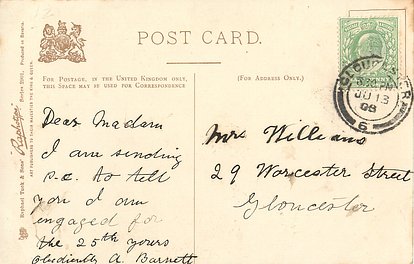 POST CARD.
FOR POSTAGE, IN THE UNITED KINGDOM ONLY,
THIS SPACE MAY BE USED FOR CORRESPONDENCE
(FOR ADDRESS ONLY.)
Raphael Tuck & Sons' "Raphotype" Series 2001. Printed in Bavaria.
ART PUBLISHERS TO THEIR MAJESTIES THE KING & QUEEN.
GLOUCESTER
JU 13
08
6
Dear Madam
I am sending
p.c. to tell
you I am
engaged for
the 25th yours
obediently A. Barnett
Mrs Williams
29 Worcester Street
Gloucester